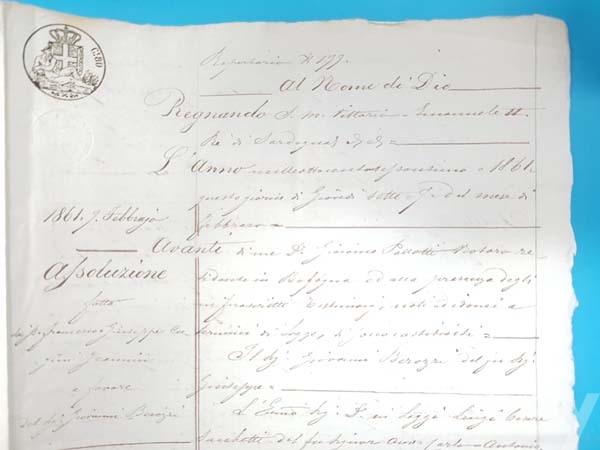 C. 80
Repertorio N. 177.
Al Nome di Dio
Regnando S. M. Vittorio Emanuele II
Re di Sardegna
L'Anno mille ottocento sessantuno 1861.
questo giorno di Giovedì sette 7 del mese di
Febbraro
1861. 7. Febbrajo
Avanti di me Dr. Giacino Notaro re-
sidente in Bologna ed alla presenza degli
infrascritti Testimonj, noti ed idonei a
termini di Legge,
Assoluzione
fatta
Francesco Giuseppe
a favore
del Sig. Giovanni
Il Sig. Giovanni del fu Sig.
Giuseppe
L'Ecmo Sig. Dr. in Legge Luigi Cesare
Sacchetti del fu Signor Avv. Carlo Antonio